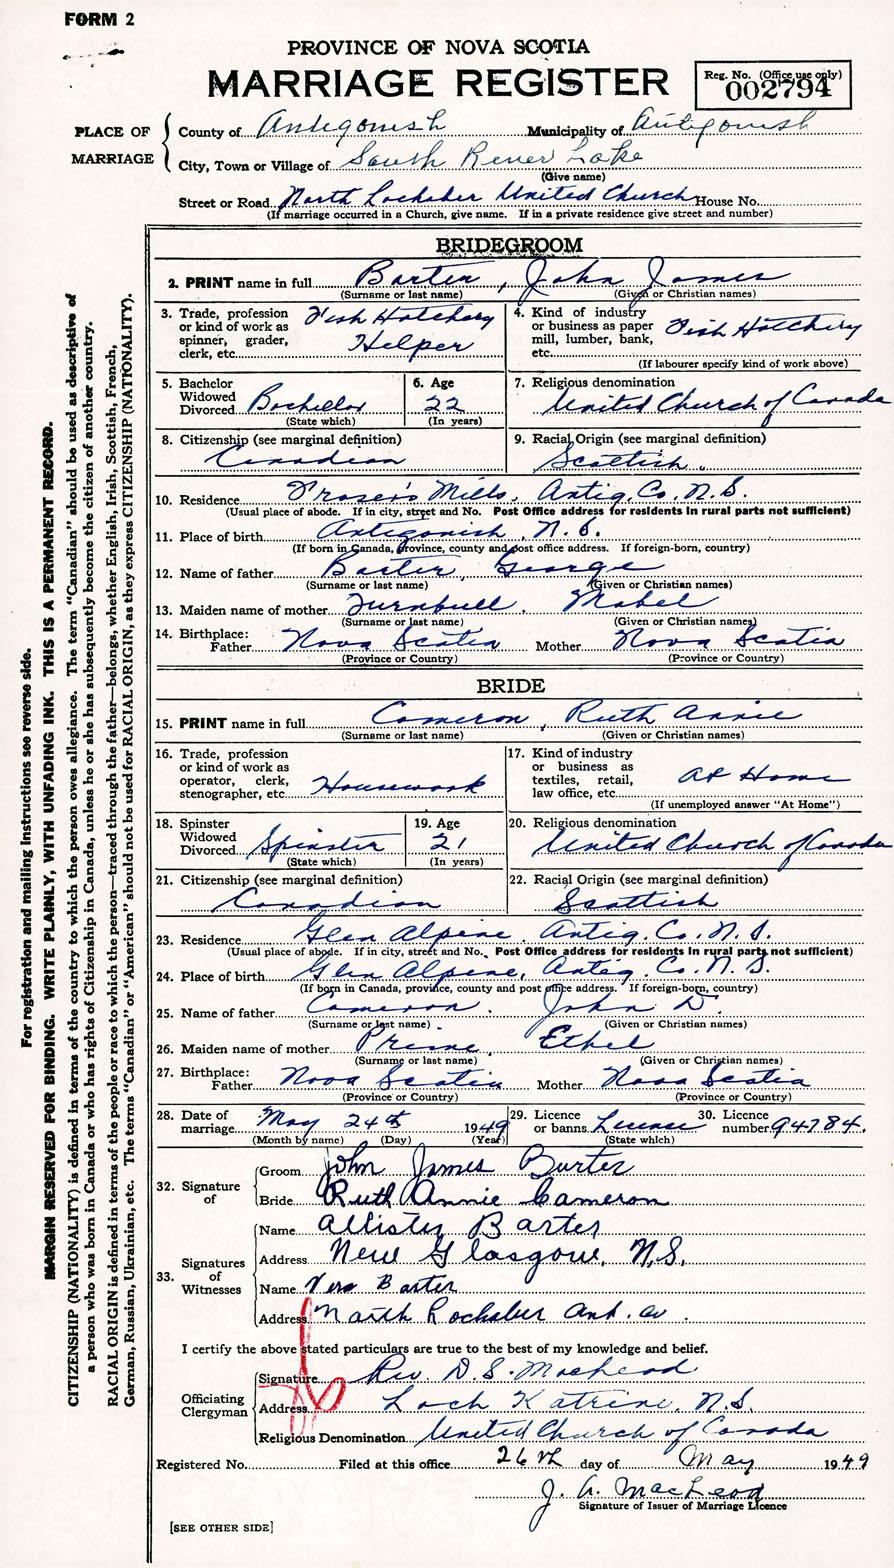 FORM 2
PROVINCE OF NOVA SCOTIA
MARRIAGE REGISTER
Reg. No. (Office use only)
002794
PLACE OF MARRIAGE
County of Antigonish Municipality of Antigonish
City, Town or Village of South River Lake
(Give name)
Street or Road North Lochaber United Church House No.
(If marriage occurred in a Church, give name. If in a private residence give street and number)
BRIDEGROOM
2. PRINT name in full Barter, John James
(Surname or last name) (Given or Christian names)
3. Trade, profession or kind of work as spinner, grader, clerk, etc. Fish Hatchery Helper
4. Kind of industry or business as paper mill, lumber, bank, etc. Fish Hatchery
(If labourer specify kind of work above)
5. Bachelor Widowed Divorced Bachellor
(State which)
6. Age 22
(In years)
7. Religious denomination United Church of Canada
8. Citizenship (see marginal definition) Canadian
9. Racial Origin (see marginal definition) Scottish
10. Residence Fraser's Mills, Antig. Co. N.S.
(Usual place of abode. If in city, street and No. Post Office address for residents in rural parts not sufficient)
11. Place of birth Antigonish, N.S.
(If born in Canada, province, county and post office address. If foreign-born, country)
12. Name of father Barter, George
(Surname or last name) (Given or Christian names)
13. Maiden name of mother Turnbull, Mabel
(Surname or last name) (Given or Christian names)
14. Birthplace:
Father Nova Scotia Mother Nova Scotia
(Province or Country) (Province or Country)
BRIDE
15. PRINT name in full Cameron, Ruth Annie
(Surname or last name) (Given or Christian names)
16. Trade, profession or kind of work as operator, clerk, stenographer, etc. Housework
17. Kind of industry or business as textiles, retail, law office, etc. At Home
(If unemployed answer "At Home")
18. Spinster Widowed Divorced Spinster
(State which)
19. Age 21
(In years)
20. Religious denomination United Church of Canada
21. Citizenship (see marginal definition) Canadian
22. Racial Origin (see marginal definition) Scottish
23. Residence Glen Alpine, Antig. Co. N.S.
(Usual place of abode. If in city, street and No. Post Office address for residents in rural parts not sufficient)
24. Place of birth Glen Alpine, Antig. Co. N.S.
(If born in Canada, province, county and post office address. If foreign-born, country)
25. Name of father Cameron, John D.
(Surname or last name) (Given or Christian names)
26. Maiden name of mother Ethel
(Surname or last name) (Given or Christian names)
27. Birthplace:
Father Nova Scotia Mother Nova Scotia
(Province or Country) (Province or Country)
28. Date of marriage May 24th 1949
(Month by name) (Day) (Year)
29. Licence or banns License
(State which)
30. Licence number 94784.
32. Signature of
Groom John James Barter
Bride Ruth Annie Cameron
33. Signatures of Witnesses
Name Allister Barter
Address New Glasgow, N.S.
Name Vera Barter
Address North Lochaber Ant. Co.
I certify the above stated particulars are true to the best of my knowledge and belief.
Officiating Clergyman
Signature Rev. D. S. MacLeod
Address Loch Katrine, N.S.
Religious Denomination United Church of Canada
Registered No. Filed at this office 26th day of May 1949
J. A. MacLeod
Signature of Issuer of Marriage Licence
[SEE OTHER SIDE]
For registration and mailing instructions see reverse side.
MARGIN RESERVED FOR BINDING. WRITE PLAINLY, WITH UNFADING INK. THIS IS A PERMANENT RECORD.
CITIZENSHIP (NATIONALITY) is defined in terms of the country to which the person owes allegiance. The term "Canadian" should be used as descriptive of
a person who was born in Canada or who has rights of Citizenship in Canada, unless he or she has subsequently become the citizen of another country.
RACIAL ORIGIN is defined in terms of the people or race to which the person—traced through the father—belongs, whether English, Irish, Scottish, French,
German, Russian, Ukrainian, etc. The terms "Canadian" or "American" should not be used for RACIAL ORIGIN, as they express CITIZENSHIP (NATIONALITY).